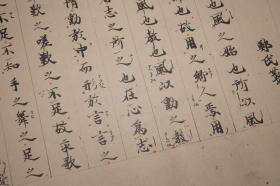 鄭氏箋
也風之始也所以風
也故用之鄉人焉用
風也教也風以動之教
志之所之也在心為志
情動於中而形於言言之
之嗟歎之不足故永歌
不足不知手之舞之足之